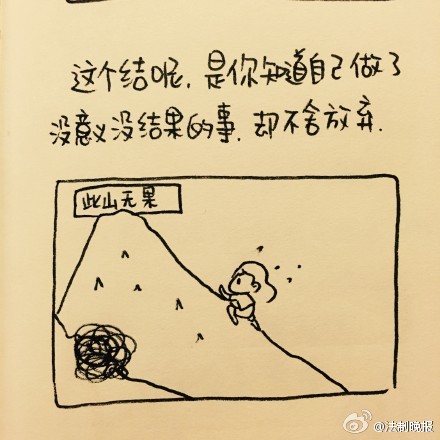 这个结呢,是你知道自己做了
没意义没结果的事,却不舍放弃.
此山无果
@法制晚报